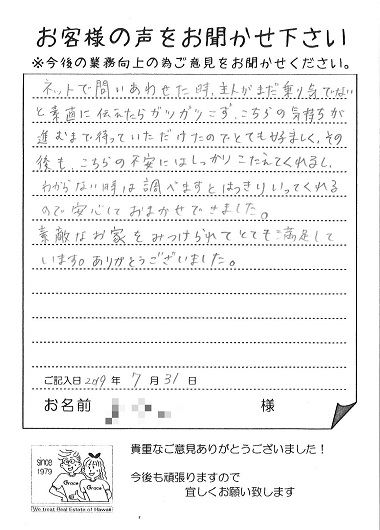 お客様の声をお聞かせ下さい
※今後の業務向上の為ご意見をお聞かせください。
ネットで問いあわせた時、主人がまだ乗り気でない
と素直に伝えたらガツガツこず、こちらの気持ちが
進むまで待っていただけたのでとても好ましく、その
後も、こちらの不安にはしっかりこたえてくれるし、
わからない時は調べますとはっきりいってくれる
ので安心しておまかせできました。
素敵なお家をみつけられてとてもご満足して
います。ありがとうございました。
ご記入日 2019 年 7 月 31 日
お名前 様
since
1979
Grace Grace
We treat Real Estate of Hawaii
貴重なご意見ありがとうございました！
今後も頑張りますので
宜しくお願い致します